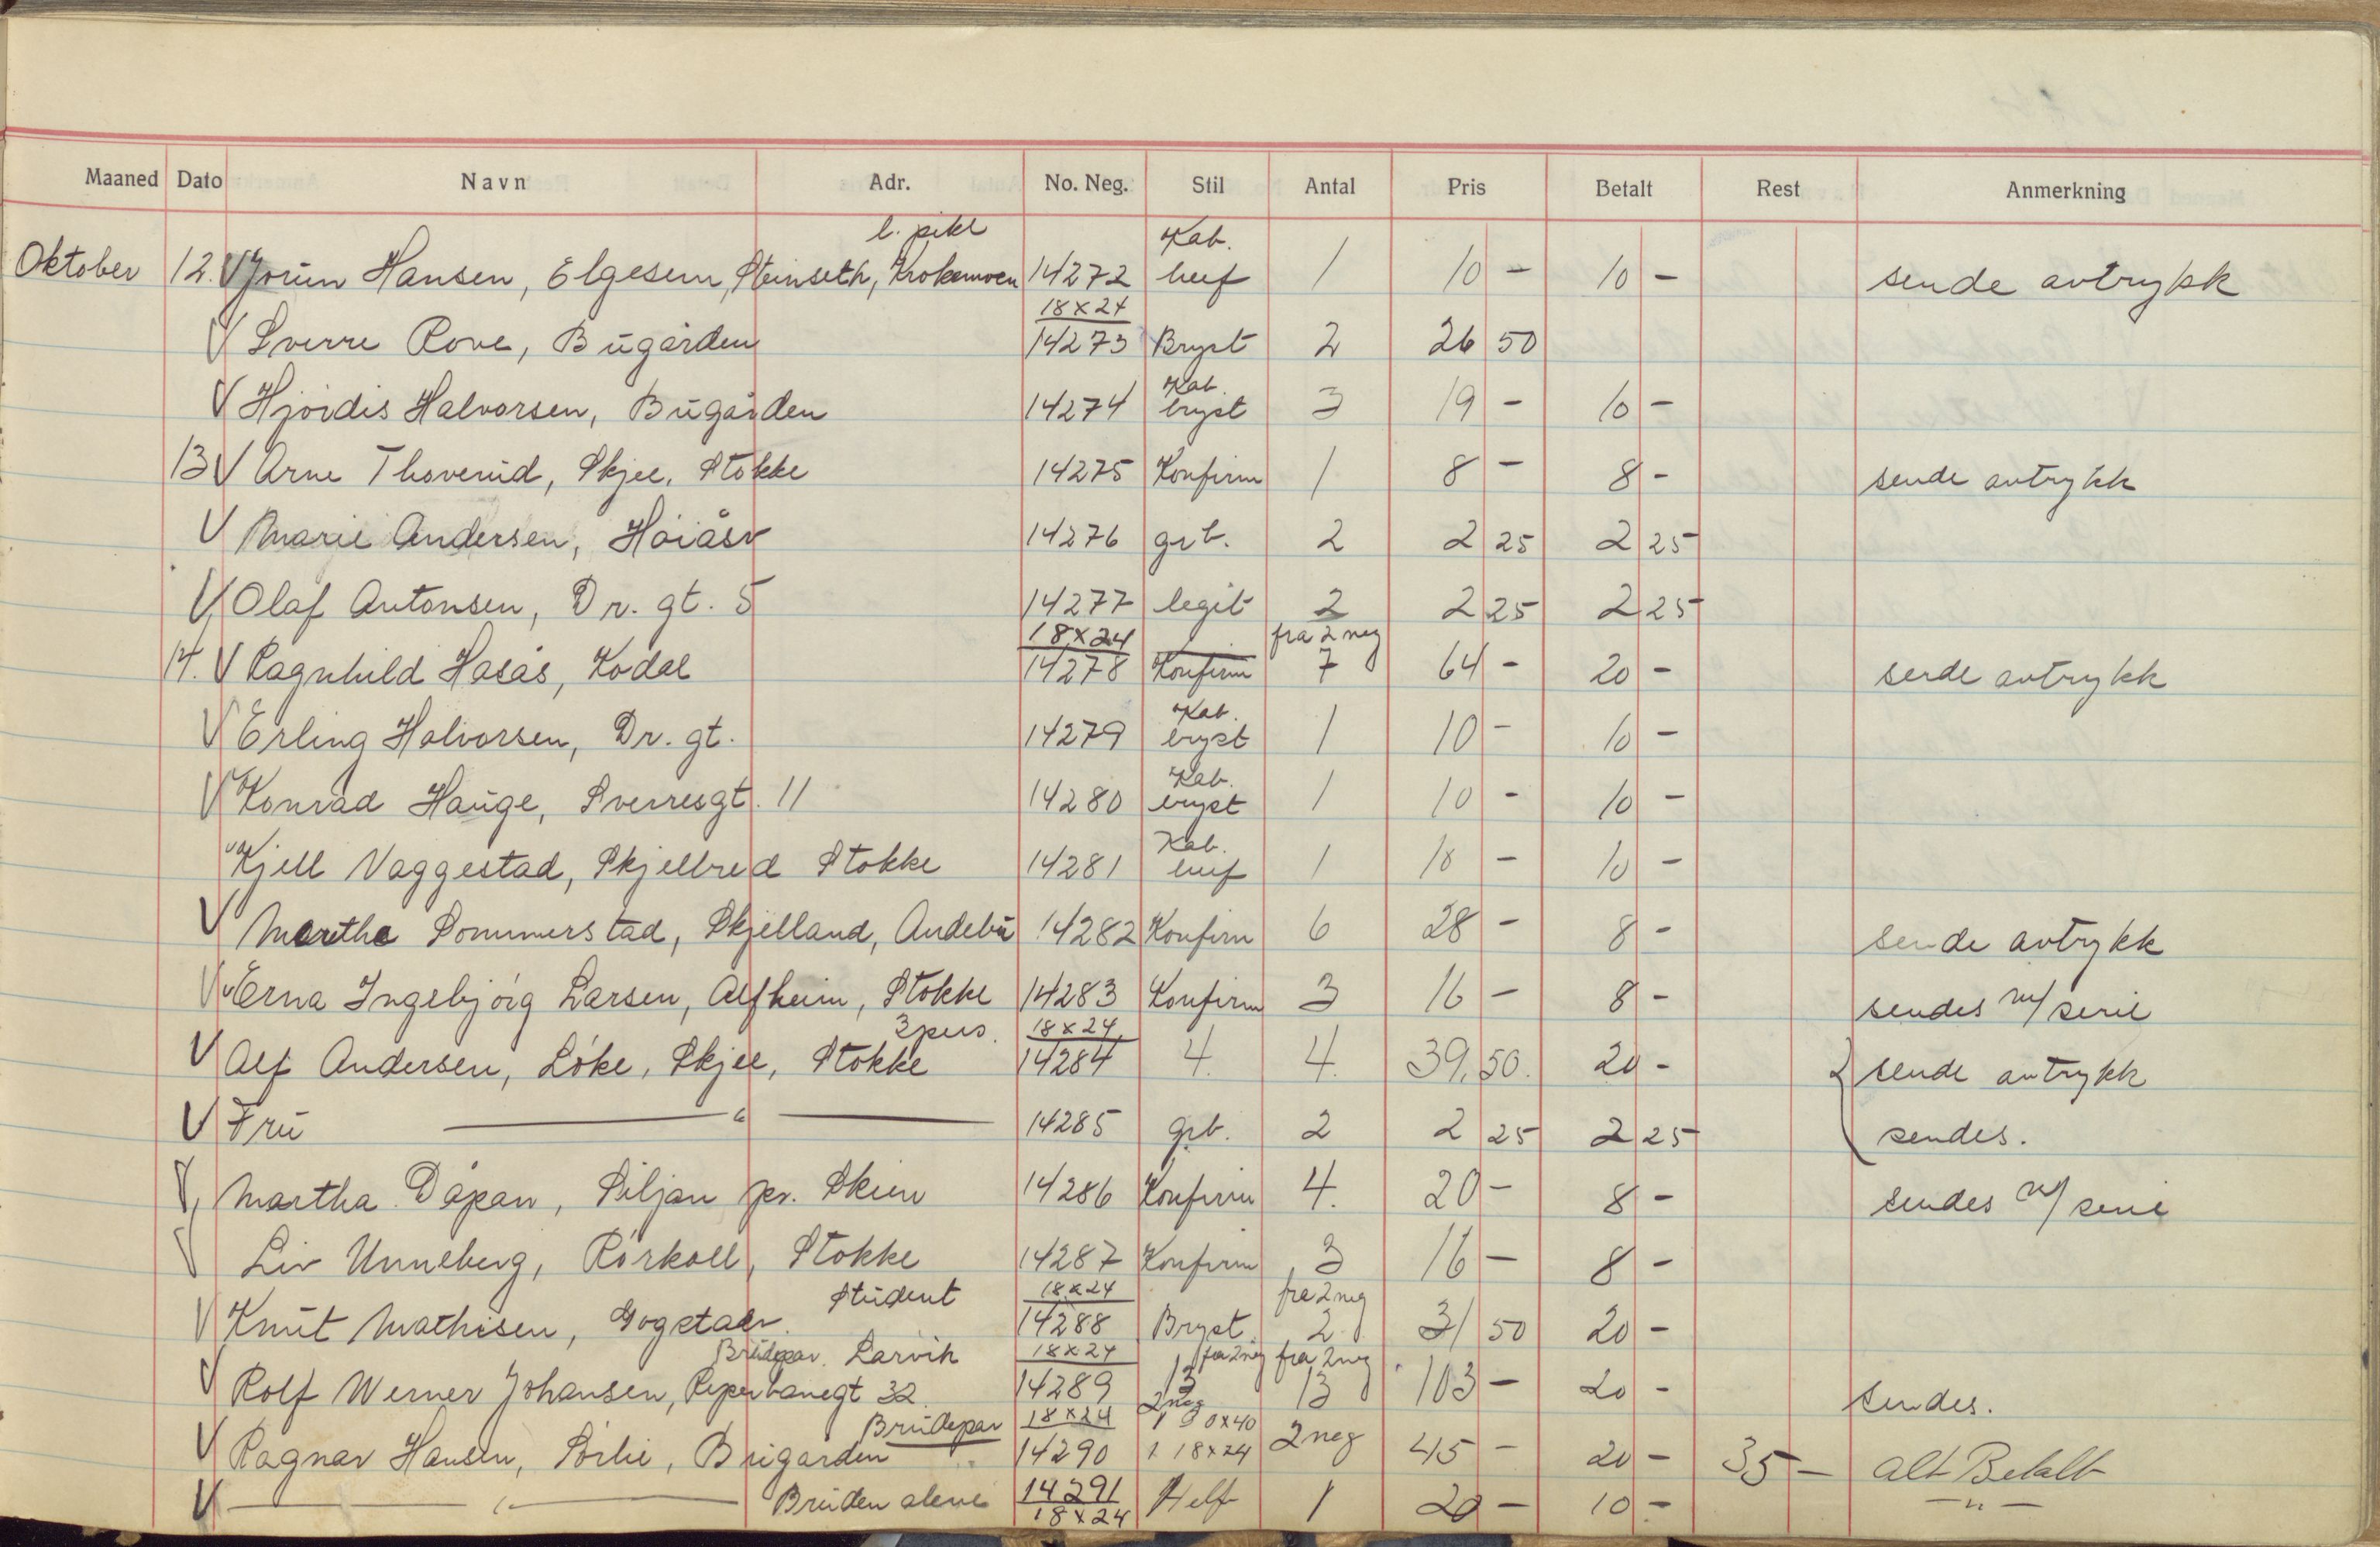 Maaned Dato Navn Adr. No. Neg. Stil Antal Pris Betalt Rest Anmerkning
l. pike Kab.
Oktober 12. V Jorun Hansen, Elgesem, Steinseth, Krokemoen 14272 luef 1 10 - 10 - sende avtrykk
18x24
V Sverre Rove, Bugården 14273 Bryst 2 26 50
Kab.
V Hjördis Halvorsen, Bugården 14274 bryst 3 19 - 10 -
13 V Arne Thoverud, Skjee, Stokke 14275 Konfirm 1 8 - 8 - sende avtrykk
V Marie Andersen, Höiåsv 14276 grb. 2 2 25 2 25
V Olaf Antonsen, Dr. gt. 5 14277 legit 2 2 25 2 25
18x24 fra 2 neg
14. V Ragnhild Hasås, Kodal 14278 Konfirm 7 64 - 20 - sende avtrykk
Kab.
V Erling Halvorsen, Dr. gt. 14279 bryst 1 10 - 10 -
Kab.
V Konrad Hauge, Sverresgt. 11 14280 bryst 1 10 - 10 -
Kab.
Kjell Vaggestad, Skjellbred Stokke 14281 luef 1 10 - 10 -
V Martha Sommerstad, Skjelland, Andebu 14282 Konfirm 6 28 - 8 - sende avtrykk
V Erna Ingebjörg Larsen, Alfheim, Stokke 14283 Konfirm 3 16 - 8 - sendes m/ serie
3 pers. 18x24
V Alf Andersen, Löke, Skjee, Stokke 14284 4. 4. 39,50. 20 - sende avtrykk
V Fru — " — 14285 grb. 2 2 25 2 25 sendes.
V Martha Dåpan, Siljan pr. Skien 14286 Konfirm 4. 20 - 8 - sendes m/ serie
V Liv Unneberg, Rörkoll, Stokke 14287 Konfirm 3 16 - 8 -
Student 18x24 fra 2 neg
V Knut Mathisen, Gogstadv. 14288 Bryst 2 31 50 20 -
Brudepar. Larvik 18x24 fra 2 neg fra 2 neg
V Rolf Werner Johansen, Reperbanegt 32 14289 13 13 103 - 20 - sendes.
Brudepar 18x24 2 neg 1 30x40
V Ragnar Hansen, Sörlie, Bugården 14290 1 18x24 2 neg 45 - 20 - 35 - alt Betalt
V — " — Bruden alene 14291 Helf 1 20 - 10 - — " —
18x24